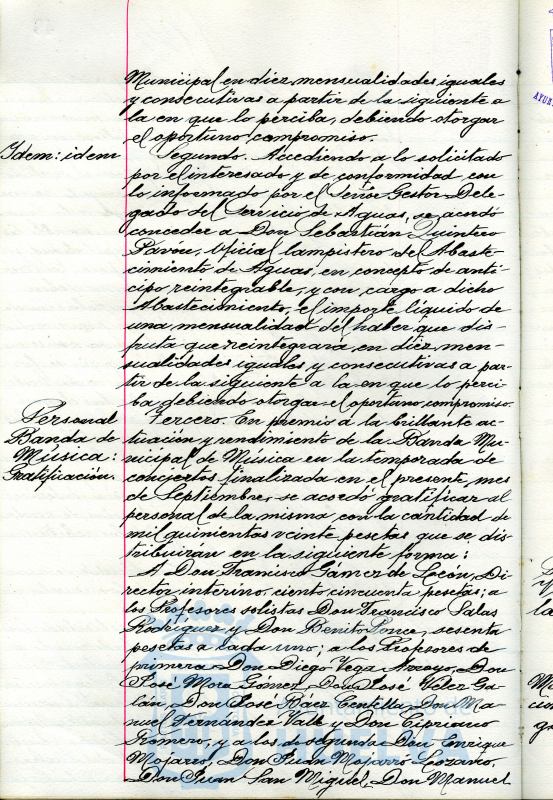 Municipal en diez mensualidades iguales
y consecutivas a partir de la siguiente a
la en que lo perciba, debiendo otorgar
el oportuno compromiso.
Idem: idem
Segundo. Accediendo a lo solicitado
por el interesado y de conformidad con
lo informado por el Señor Gestor Dele-
gado del Servicio de Aguas, se acordó
conceder a Don Sebastián Quintero
Pavón, Oficial lampistero del Abaste-
cimiento de Aguas, en concepto de anti-
cipo reintegrable, y con cargo a dicho
Abastecimiento, el importe líquido de
una mensualidad del haber que dis-
fruta que reintegrará en diez men-
sualidades iguales y consecutivas a par-
tir de la siguiente a la en que lo perci-
ba debiendo otorgar el oportuno compromiso.
Personal
Banda de
Música:
Gratificación.
Tercero. En premio a la brillante ac-
tuación y rendimiento de la Banda Mu-
nicipal de Música en la temporada de
conciertos finalizada en el presente mes
de Septiembre, se acordó gratificar al
personal de la misma con la cantidad de
mil quinientas veinte pesetas que se dis-
tribuirán en la siguiente forma:
A Don Francisco Gámez de León, Di-
rector interino ciento cincuenta pesetas; a
los Profesores solistas Don Francisco Salas
Rodríguez y Don Benito Ponce, sesenta
pesetas a cada uno; a los Profesores de
primera Don Diego Vega Arroyo, Don
José Mora Gómez, Don José Velez Ga-
lán, Don José Báez Centella, Don Ma-
nuel Fernández Valle y Don Cipriano
Romero, y a los de segunda Don Enrique
Mojarro, Don Juan Mojarro Lozano,
Don Juan San Miguel, Don Manuel
HUELVA